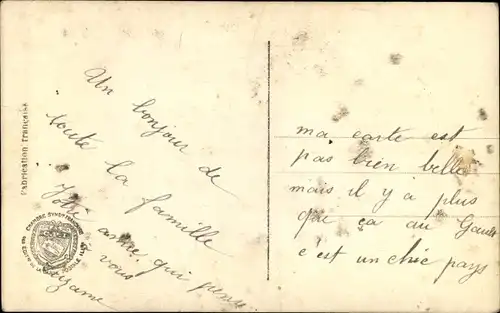 Fabrication française
Un bonjour de
toute la famille
amie qui pense
vous
ma carte est
pas bien belle
mais il y a plus
que ça au
c'est un chic pays